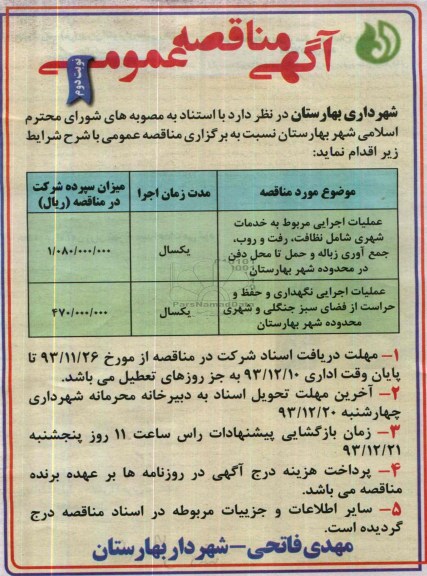 آگهی مناقصه عمومی
نوبت دوم
شهرداری بهارستان در نظر دارد با استناد به مصوبه های شورای محترم
اسلامی شهر بهارستان نسبت به برگزاری مناقصه عمومی با شرح شرایط
زیر اقدام نماید:
موضوع مورد مناقصه
مدت زمان اجرا
میزان سپرده شرکت
در مناقصه (ریال)
عملیات اجرایی مربوط به خدمات
شهری شامل نظافت، رفت و روب،
جمع آوری زباله و حمل تا محل دفن
در محدوده شهر بهارستان
یکسال
۱/۰۸۰/۰۰۰/۰۰۰
عملیات اجرایی نگهداری و حفظ و
حراست از فضای سبز جنگلی و شهری
محدوده شهر بهارستان
یکسال
۴۷۰/۰۰۰/۰۰۰
ParsNamadData
۱- مهلت دریافت اسناد شرکت در مناقصه از مورخ ۹۳/۱۱/۲۶ تا
پایان وقت اداری ۹۳/۱۲/۱۰ به جز روزهای تعطیل می باشد.
۲- آخرین مهلت تحویل اسناد به دبیرخانه محرمانه شهرداری
چهارشنبه ۹۳/۱۲/۲۰
۳- زمان بازگشایی پیشنهادات راس ساعت ۱۱ روز پنجشنبه
۹۳/۱۲/۲۱
۴- پرداخت هزینه درج آگهی در روزنامه ها بر عهده برنده
مناقصه می باشد.
۵- سایر اطلاعات و جزییات مربوطه در اسناد مناقصه درج
گردیده است.
مهدی فاتحی - شهردار بهارستان